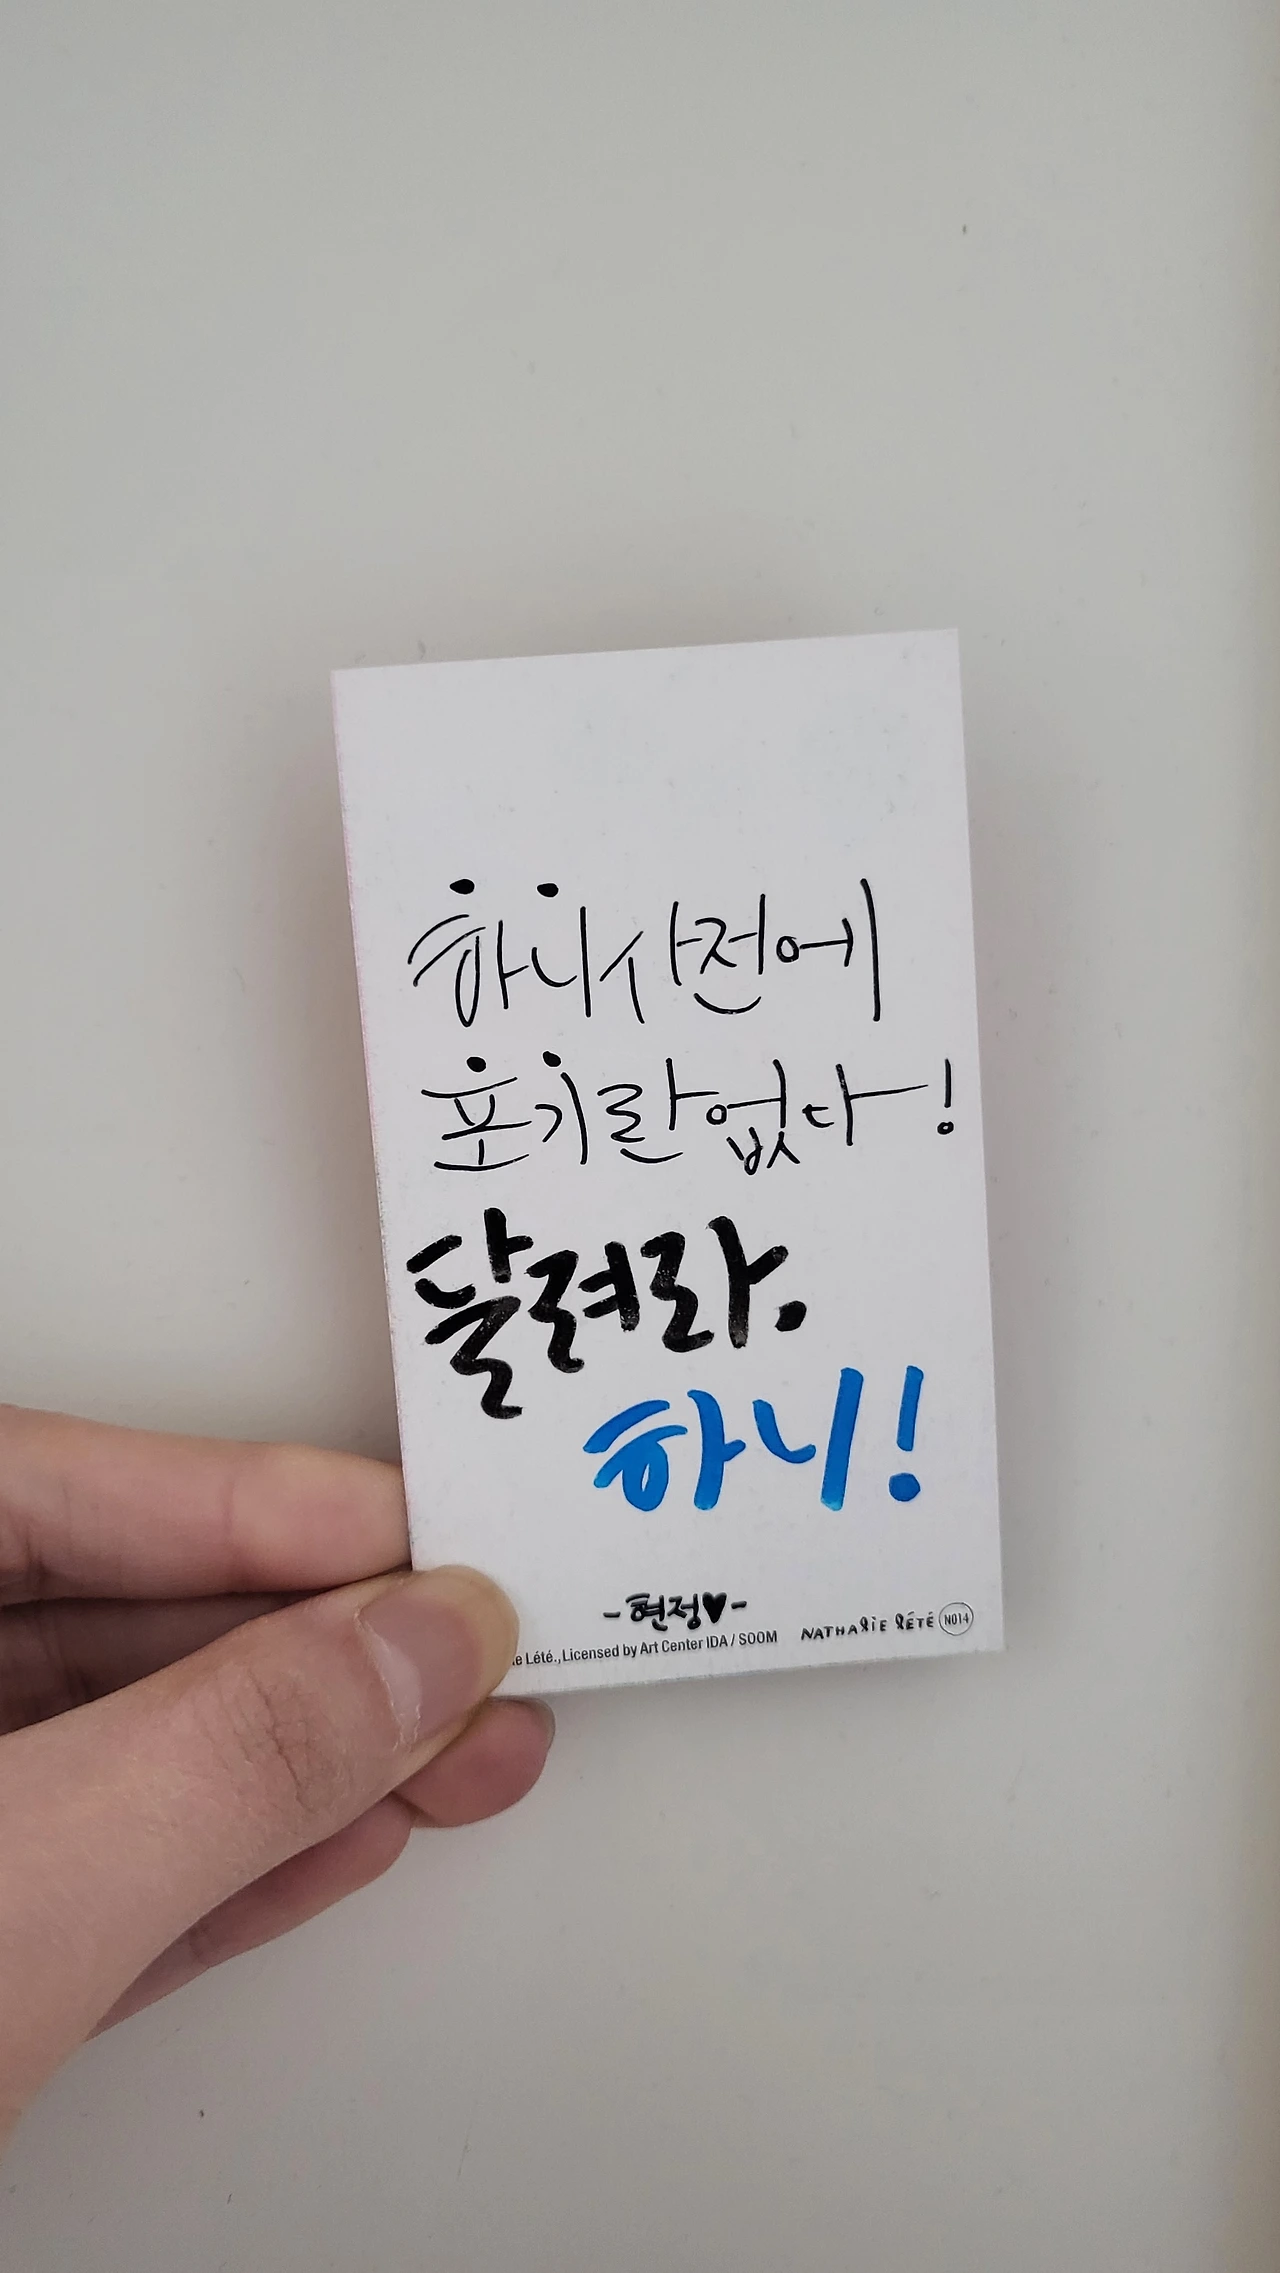 하니사전에
포기란없다!
달려라.
하니!
-현정♥-
le Lété., Licensed by Art Center IDA / SOOM
NATHALIE LÉTÉ N014